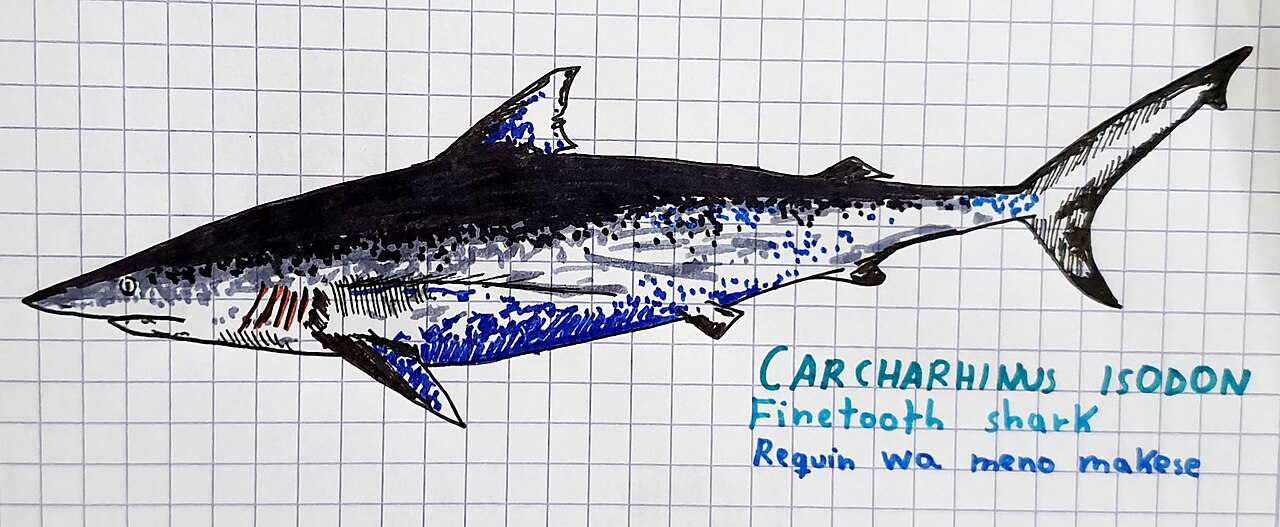 CARCHARHINUS ISODON
Finetooth shark
Requin wa meno makese